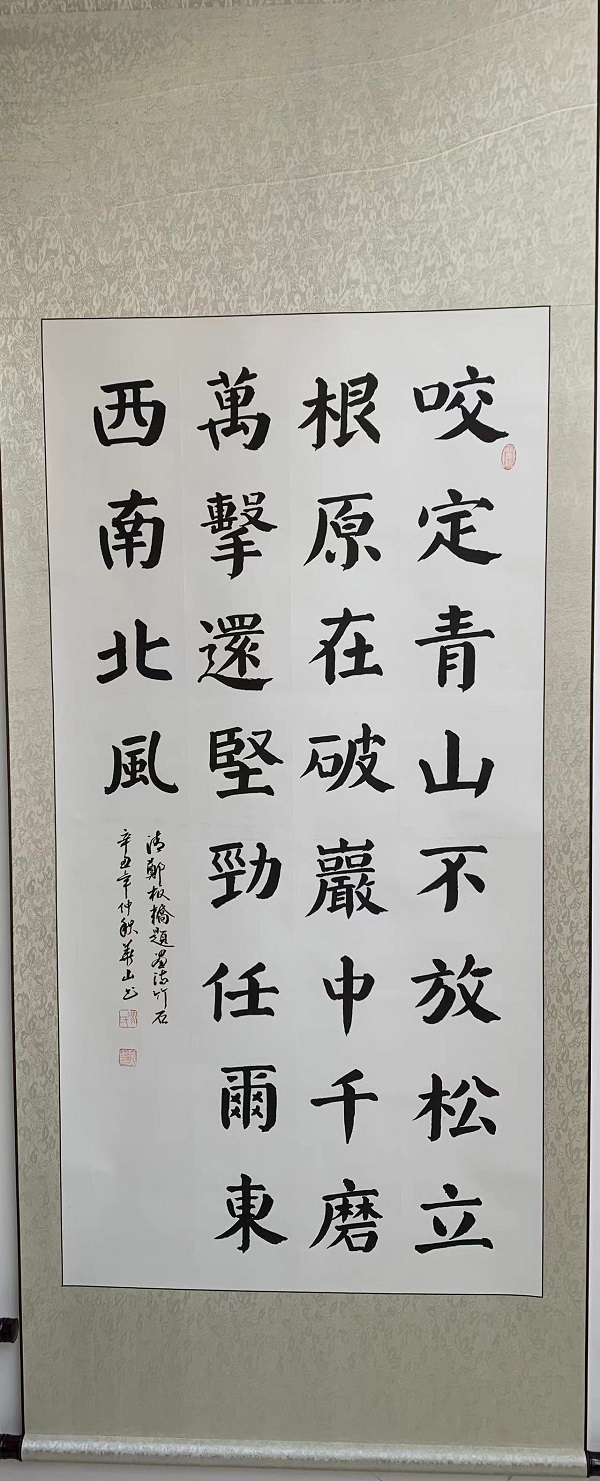 咬定青山不放松立
根原在破巖中千磨
萬擊還堅勁任爾東
西南北風
清鄭板橋題畫詩竹石
辛丑年仲秋華山书